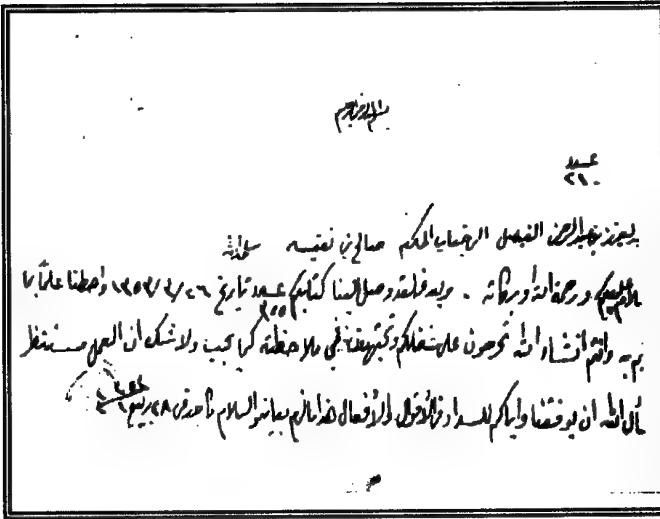 بسم الله الرحمن الرحيم
عدد
٢١٠
بن عبد الرحمن الفيصل الى جناب المكرم صالح بن نفيسه سلمه الله
عليكم ورحمة الله وبركاته . وبعد فلقد وصل الينا كتابكم عدد بتاريخ ٢٦/٣/١٣٥٣ واحطنا علماً بما
به وانتم انشاء الله تحرصون على شغلكم وتجتهدون في ملاحظته كما يجب ولا شك ان العمل
الله ان يوفقنا واياكم للسداد في الأقوال والأفعال هذا ما لزم بيانه والسلام ٢٨ ربيع